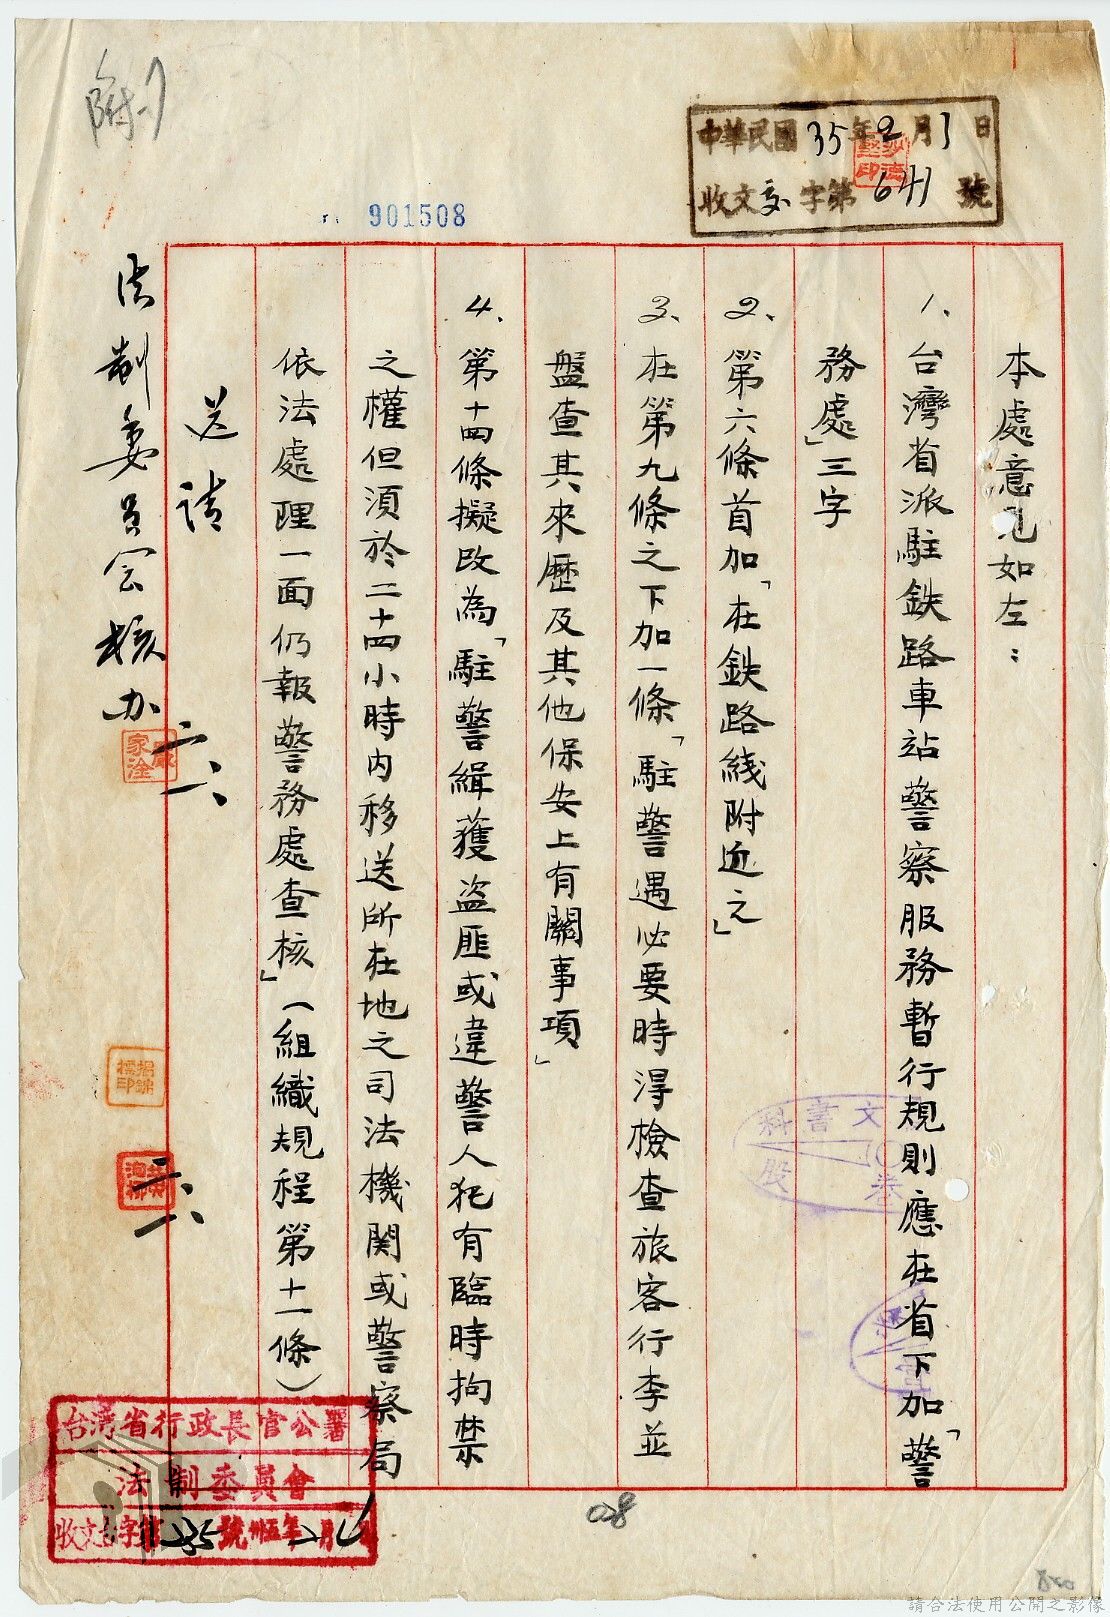 附
中華民國35年2月1日
收文交字第641號
901508
本處意見如左：
1、台灣省派駐鉄路車站警察服務暫行規則應在省下加「警
務處」三字
2、第六條首加「在鉄路綫附近之」
3、在第九條之下加一條「駐警遇必要時淂檢查旅客行李並
盤查其來歷及其他保安上有關事項」
4、第十四條擬改為「駐警緝獲盜匪或違警人犯有臨時拘禁
之權但須於二十四小時內移送所在地之司法機関或警察局
依法處理一面仍報警務處查核」（組織規程第十一條）
送請
法制委員会核办
二、六
二、六
文書科
卷股
台灣省行政長官公署
法制委員會
028
請合法使用公開之影像